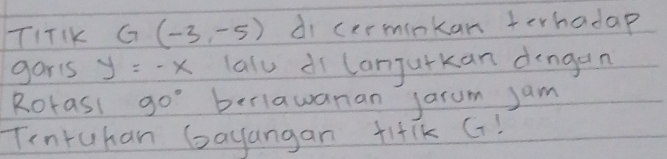 TITIK G (-3,-5) di cerminkan terhadap
garis y = -x lalu di lanjutkan dengan
Rotasi 90° berlawanan jarum jam
Tentukan bayangan titik G!